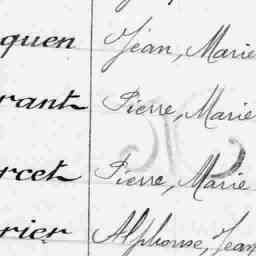 quen Jean, Marie
rant Pierre, Marie
rcet Pierre, Marie
rier Alphonse, Jean